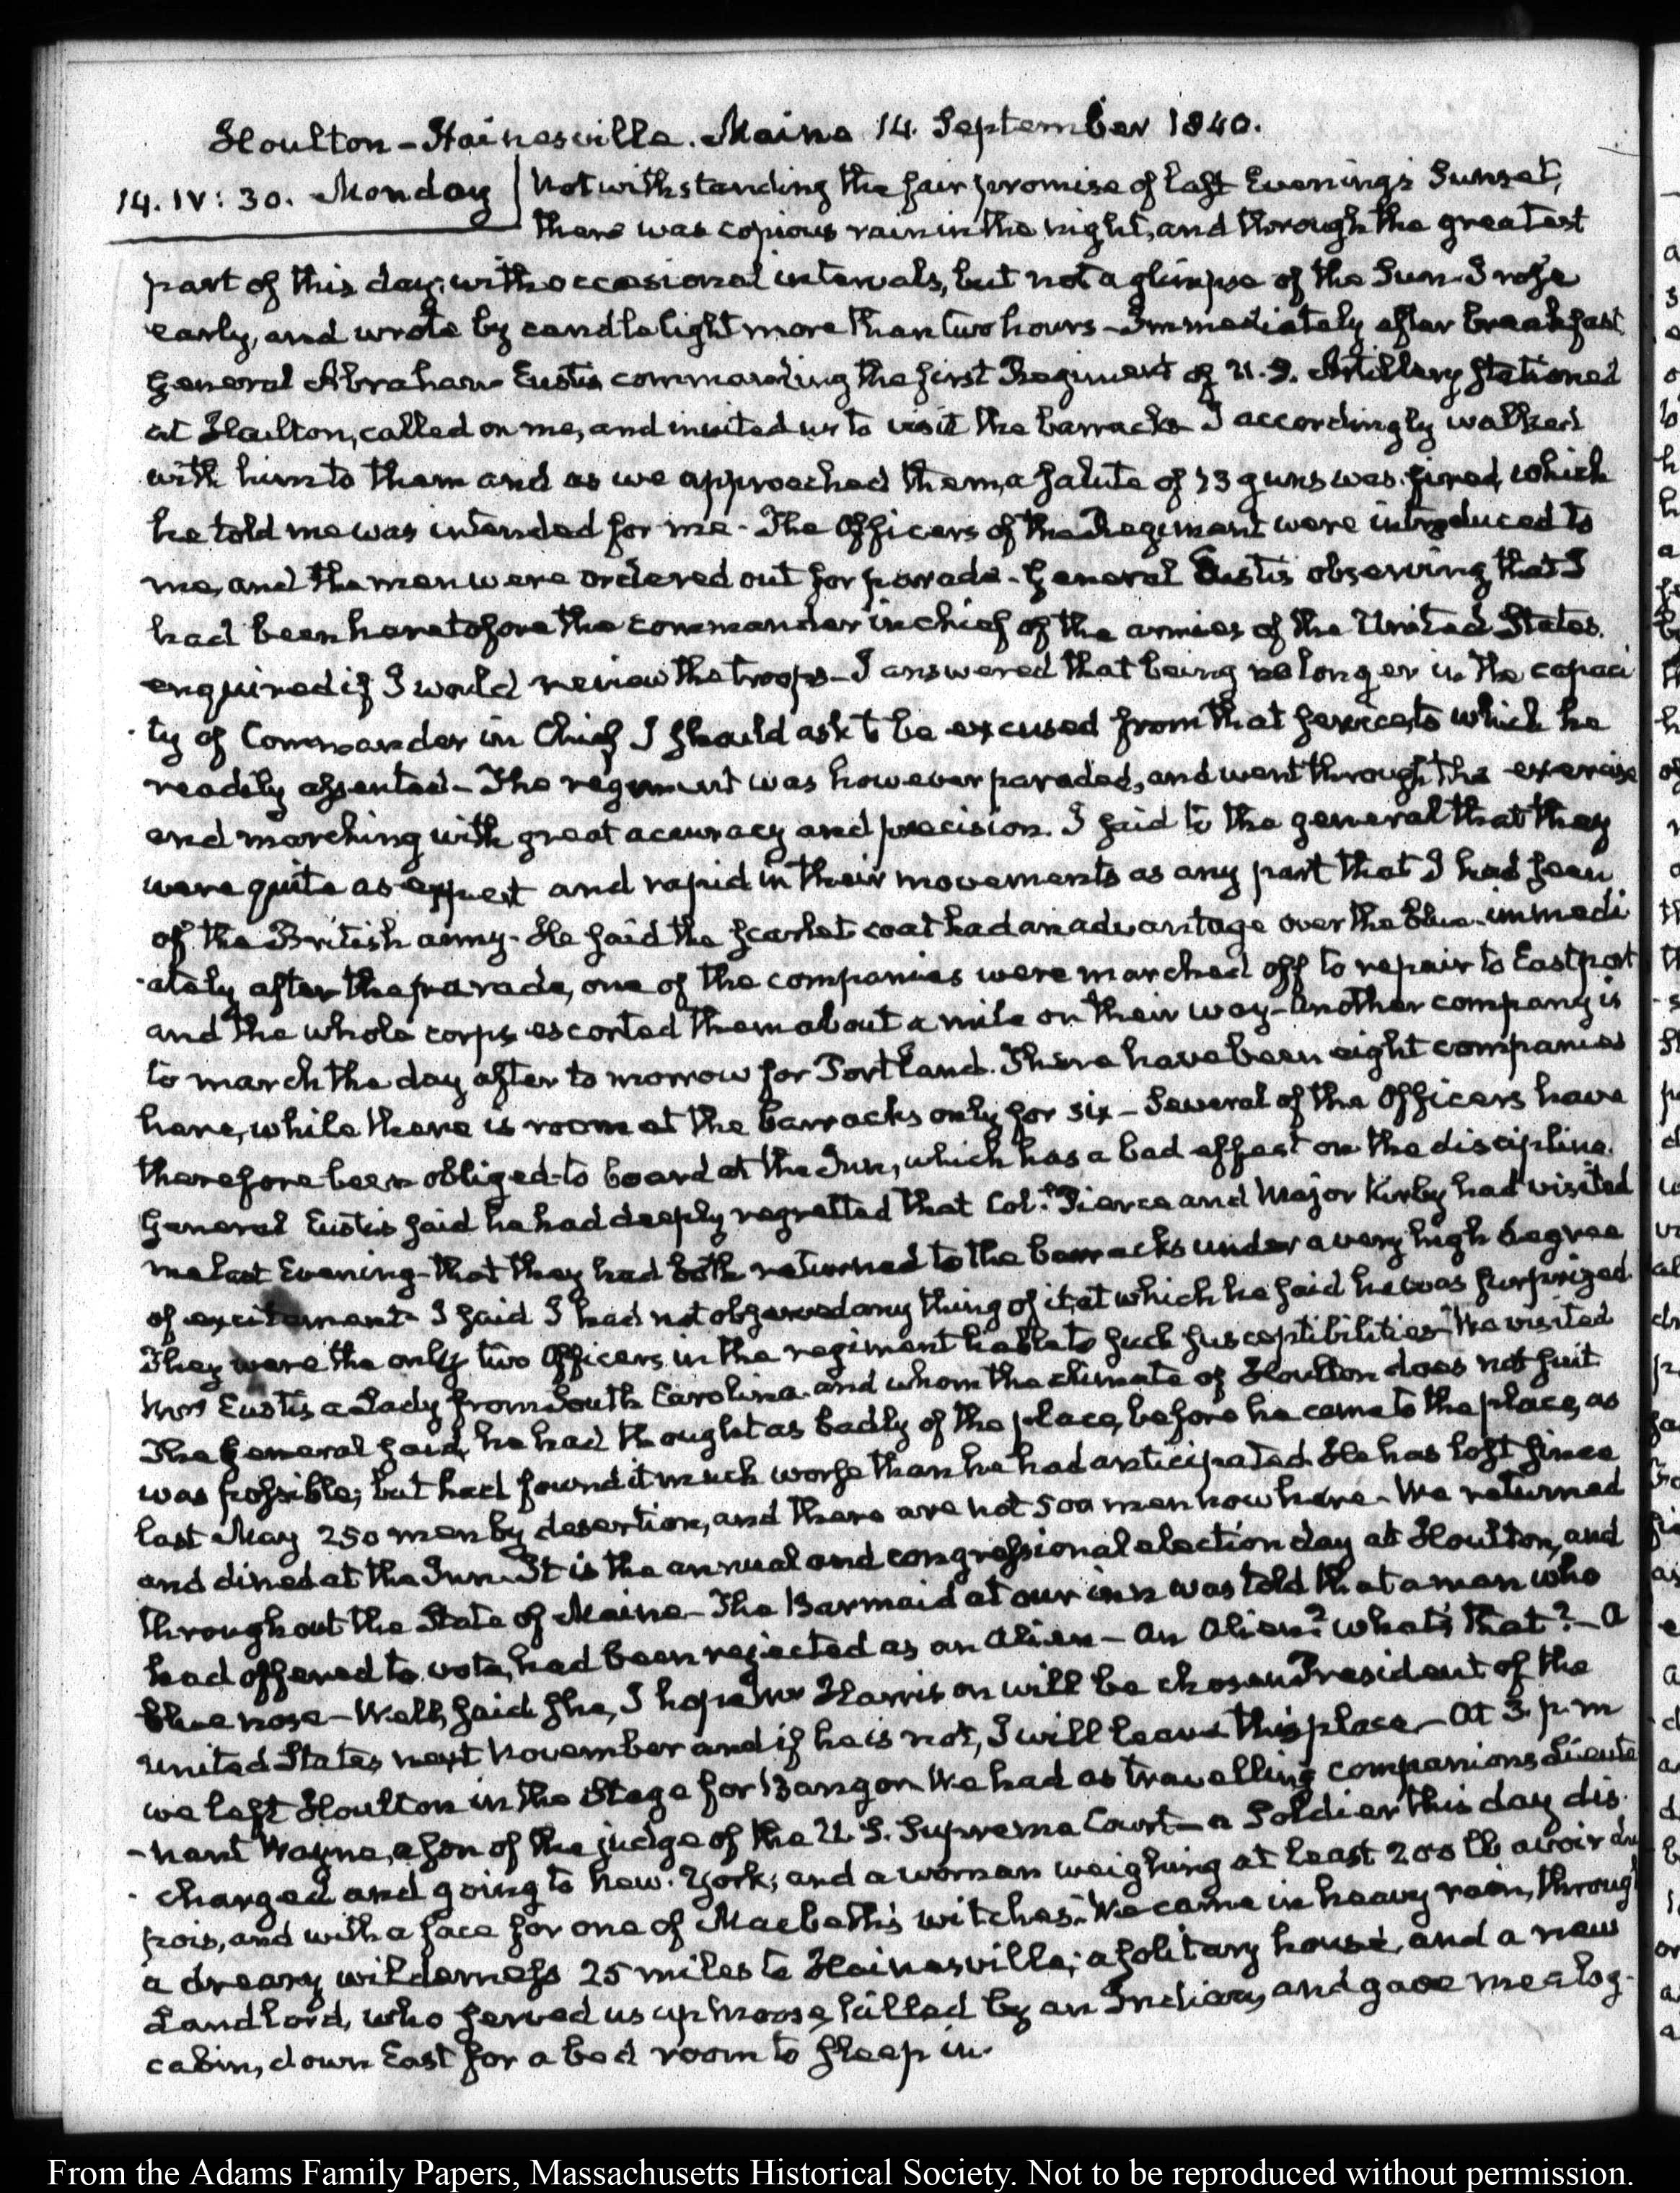 Houlton - Hainesville. Maine 14. September 1840.
14. IV: 30. Monday
Notwithstanding the fair promise of last Evening's Sunset,
there was copious rain in the night, and through the greatest
part of this day; with occasional intervals, but not a glimpse of the Sun. I rose
early, and wrote by candle light more than two hours - Immediately after breakfast
General Abraham Eustis commanding the first Regiment of U.S. Artillery stationed
at Houlton, called on me, and invited us to visit the barracks I accordingly walked
with him to them and as we approached them, a salute of 13 guns was fired, which
he told me was intended for me - The Officers of the Regiment were introduced to
me, and the men were ordered out for parade - General Eustis observing that I
had been heretofore the commander in chief of the armies of the United States.
enquired if I would review the troops - I answered that being no longer in the capaci
-ty of Commander in Chief I should ask to be excused from that service, to which he
readily assented - The regiment was however paraded, and went through the exercise
and marching with great accuracy and precision. I said to the general that they
were quite as expert and rapid in their movements as any part that I had seen
of the British army - He said the scarlet coat had an advantage over the blue - immedi
-ately after the parade, one of the companies were marched off to repair to Eastport
and the whole corps escorted them about a mile on their way - Another company is
to march the day after to morrow for Portland. There have been eight companies
here, while there is room at the barracks only for six - Several of the Officers have
therefore been obliged to board at the Inn, which has a bad effect on the discipline.
General Eustis said he had deeply regretted that Col.t Pierce and Major Kirby had visited
me last Evening - that they had both returned to the barracks under a very high degree
of excitement - I said I had not observed any thing of it, at which he said he was surprized
They were the only two Officers in the regiment liable to such susceptibilities - We visited
Mrs Eustis a Lady from South Carolina. and whom the climate of Houlton does not suit
The General said, he had thought as badly of the place, before he came to the place, as
was possible; but had found it much worse than he had anticipated. He has lost since
last May 250 men by desertion, and there are not 500 men now here - We returned
and dined at the Inn. It is the annual and congressional election day at Houlton, and
throughout the State of Maine - The Barmaid at our inn was told that a man who
had offered to vote, had been rejected as an alien - An Alien? what's that? - A
blue nose - Well, said she, I hope Mr Harrison will be chosen President of the
United States next November and if he is not, I will leave this place - At 3. p.m
we left Houlton in the Stage for Bangor We had as travelling companions Lieute
-nant Wayne, a son of the judge of the U.S. Supreme Court - a Soldier this day dis
-charged and going to New-York; and a woman weighing at least 200 lb avoirdu
pois, and with a face for one of Macbeth's witches. We came in heavy rain, through
a dreary wilderness 25 miles to Hainesville; a solitary house, and a new
Landlord, who served us up Moose killed by an Indian, and gave me a log-
cabin, down East for a bed room to sleep in.
From the Adams Family Papers, Massachusetts Historical Society. Not to be reproduced without permission.